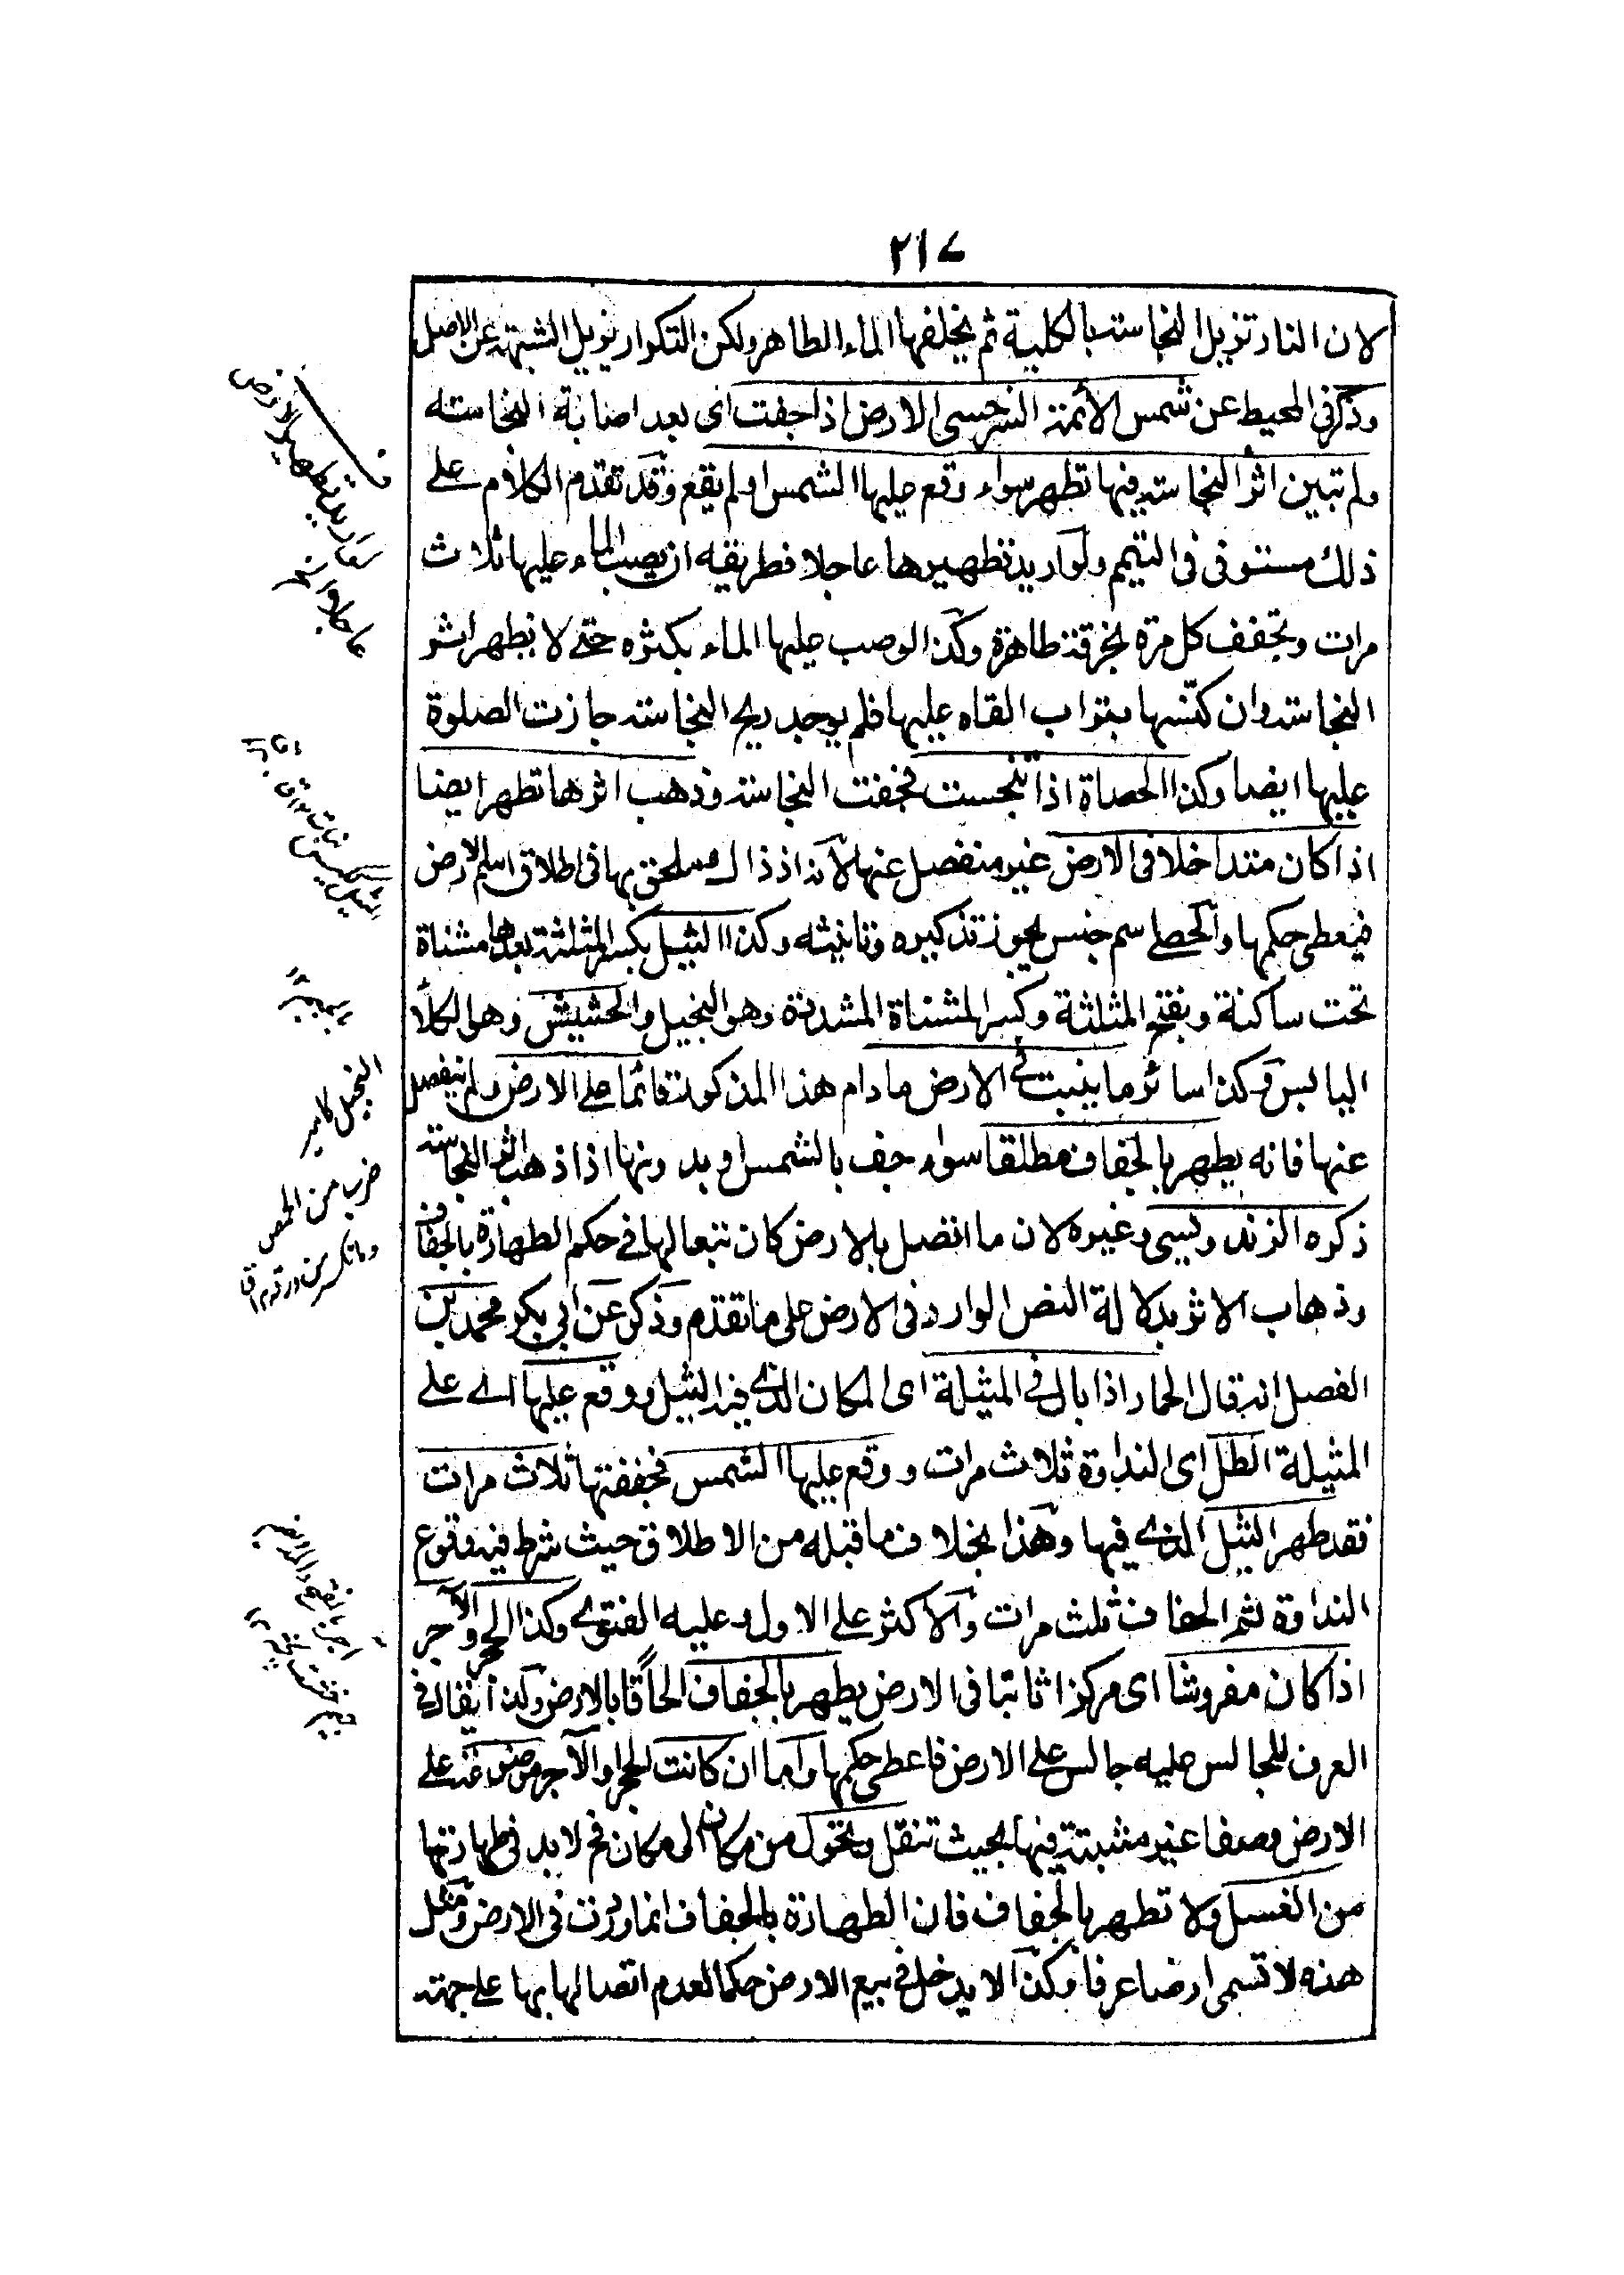 ٢١٧
لان النار تزيل النجاسة بالكلية ثم يخلفها الماء الطاهر ولكن التكرار يزيل الشبهة عن الاصل
وذكر في المحيط عن شمس الأئمة السرخسي الارض اذا جفت اى بعد اصابة النجاسته
ولم تبين اثر النجاسته فيها تطهر سواء وقع عليها الشمس او لم يقع وقد تقدم الكلام على
ذلك مستوفى فى التيمم ولو اريد تطهيرها عاجلا فطريقه ان يصب الماء عليها ثلاث
مرات وتجفف كل مرة بخرقة طاهرة وكذا لو صب عليها الماء بكثره حتى لا يظهر اثر
النجاسته وان كنسها بتراب القاه عليها فلم يوجد ريح النجاسته جازت الصلوة
عليها ايضا وكذا الحصاة اذا تنجست فجفت النجاسته وذهب اثرها تطهر ايضا
اذا كان متداخلا فى الارض غير منفصل عنها لانه اذ ذاك ملحق بها فى اطلاق اسم الارض
فيعطى حكمها والحصى اسم جنس يجوز تذكيره وتانيثه وكذا الثيل بكسر المثلثة بعدها مثناة
تحت ساكنة وبفتح المثلثة وكسر المثناة المشددة وهو النجيل والحشيش وهو الكلأ
اليابس وكذا سائر ما ينبت فى الارض ما دام هذا المذكور قائما على الارض ولم ينفصل
عنها فانه يطهر بالجفاف مطلقا سواء جف بالشمس او بدونها اذا ذهب اثر النجاسته
ذكره الزندويسى وغيره لان ما اتصل بالارض كان تبعا لها فى حكم الطهارة بالجفاف
وذهاب الاثر بدلالة النص الوارد فى الارض على ما تقدم وذكر عن ابى بكر محمد بن
الفصل انه قال الحمار اذا بال فى المثيلة اى المكان الذى فيه الثيل ووقع عليها اى على
المثيلة الطل اى النداوة ثلاث مرات ووقع عليها الشمس فجففتها ثلاث مرات
فقد طهر الثيل الذى فيها وهذا بخلاف ما قبله من الاطلاق حيث شرط فيه وقوع
النداوة ثم الجفاف ثلث مرات والاكثر على الاول وعليه الفتوى وكذا الحجر والآجر
اذا كان مفروشا اى مركزا ثابتا فى الارض يطهر بالجفاف الحاقا بالارض وكذا يقال فى
العرف للجالس عليه جالس على الارض فاعطى حكمها واما ان كانت الحجر او الآجر موضوعة على
الارض وصفا غير مثبتة فيها بحيث تنقل وتحول من مكان الى مكان فح لا بد فى طهارتها
من الغسل ولا تطهر بالجفاف فان الطهارة بالجفاف انما وردت فى الارض ومثل
هذه لا تسمى ارضا عرفا وكذا لا يدخل فى بيع الارض حكما لعدم اتصالها بها على جهته
لو اريد تطهير الارض
عاجلا
النجيل كامير
ضرب من الحمض